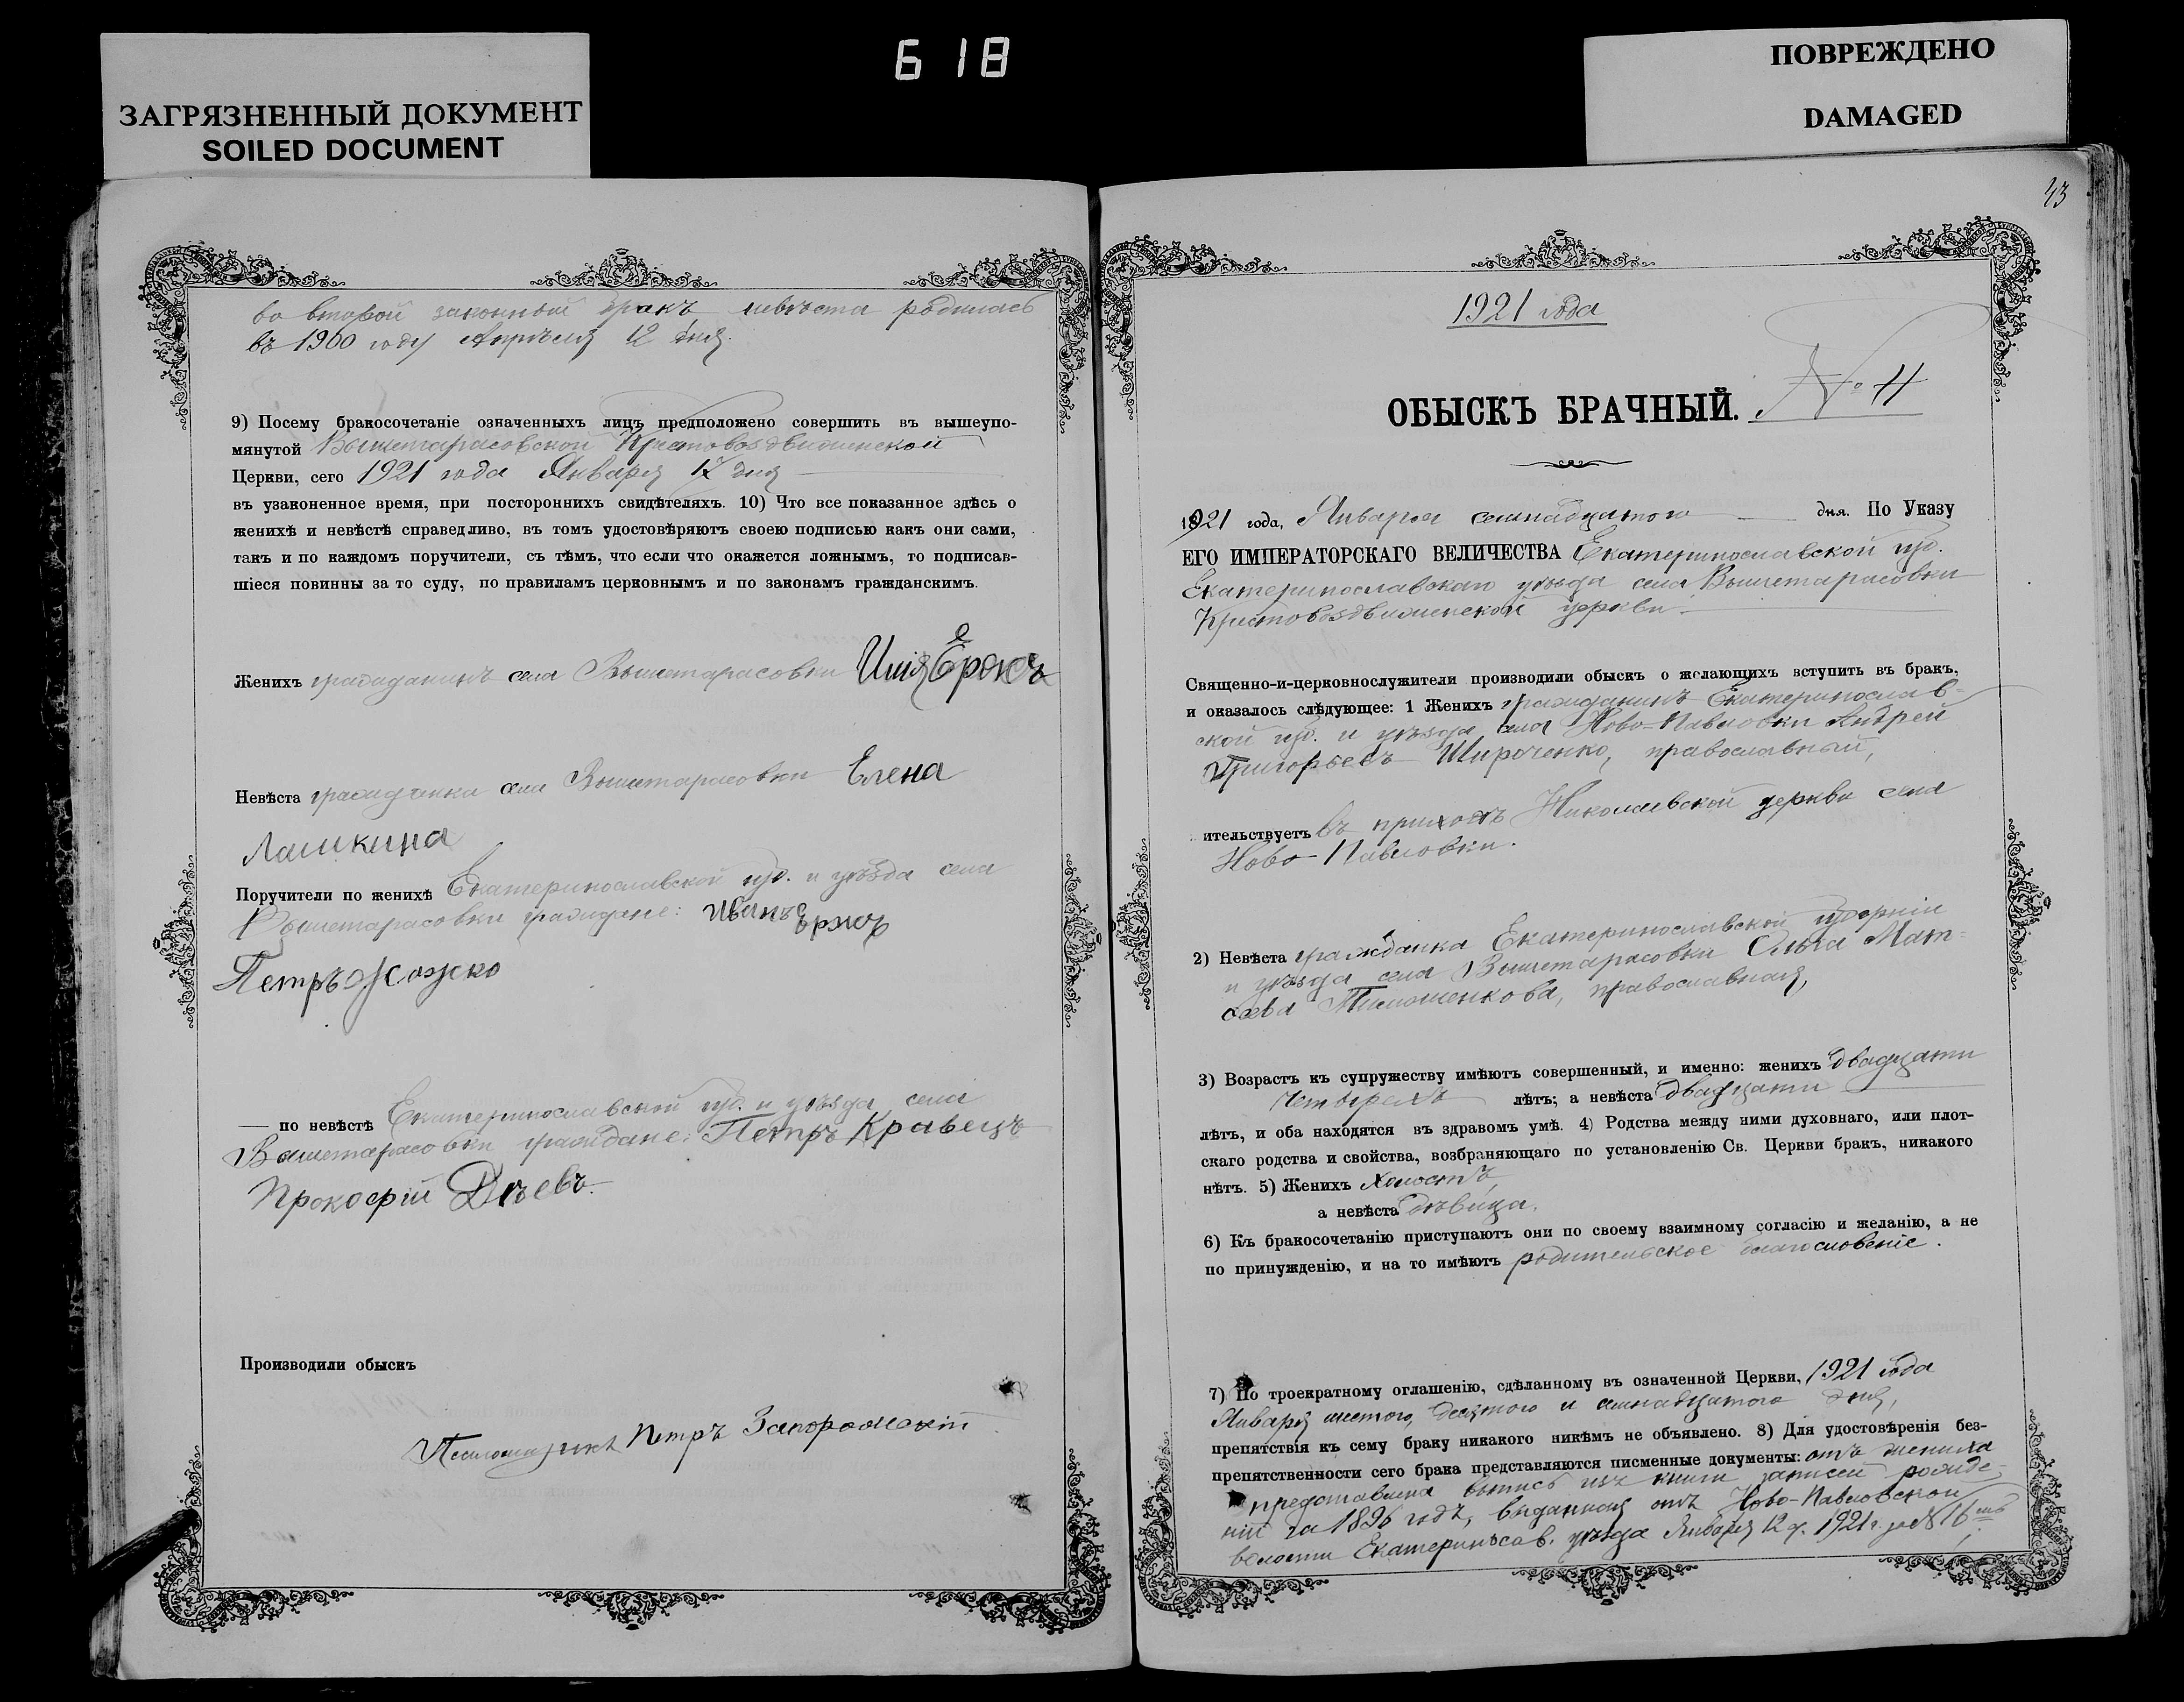 618
ЗАГРЯЗНЕННЫЙ ДОКУМЕНТ
SOILED DOCUMENT
ПОВРЕЖДЕНО
DAMAGED
во второй законный бракъ, невѣста родилась
въ 1900 году Апрѣля 12 дня.
9) Посему бракосочетаніе означенныхъ лицъ предположено совершить въ вышеупо-
мянутой Вышетарасовской Крестовоздвиженской
Церкви, сего 1921 года Января 17 дня
въ узаконенное время, при постороннихъ свидѣтеляхъ. 10) Что все показанное здѣсь о
женихѣ и невѣстѣ справедливо, въ томъ удостовѣряютъ своею подписью какъ они сами,
такъ и по каждомъ поручители, съ тѣмъ, что если что окажется ложнымъ, то подписав-
шіеся повинны за то суду, по правиламъ церковнымъ и по законамъ гражданскимъ.
Женихъ гражданинъ села Вышетарасовки
Невѣста гражданка села Вышетарасовки Елена
Лашкина
Поручители по женихѣ Екатеринославской губ. и уѣзда села
Вышетарасовки граждане: Иванъ
Петръ
— по невѣстѣ Екатеринославской губ. и уѣзда села
Вышетарасовки граждане: Петръ Кравецъ
Прокофій Дѣевъ.
Производили обыскъ
Псаломщикъ Петръ Запорожскій
43
1921 года
ОБЫСКЪ БРАЧНЫЙ. № 11
1921 года, Января семнадцатого дня. По Указу
ЕГО ИМПЕРАТОРСКАГО ВЕЛИЧЕСТВА Екатеринославской губ.
Екатеринославскаго уѣзда села Вышетарасовки
Крестовоздвиженской церкви.
Священно-и-церковнослужители производили обыскъ о желающихъ вступить въ бракъ,
и оказалось слѣдующее: 1 Женихъ гражданинъ Екатеринослав-
ской губ. и уѣзда, села Ново-Павловки Андрей
Григорьевъ Широченко, православный,
ительствуетъ въ приходѣ Николаевской церкви села
Ново-Павловки.
2) Невѣста гражданка Екатеринославской губерніи
и уѣзда села Вышетарасовки Ольга Мат-
ѳеева Тимошенкова, православная,
3) Возрастъ къ супружеству имѣютъ совершенный, и именно: женихъ двадцати
четырехъ лѣтъ; а невѣста двадцати
лѣтъ, и оба находятся въ здравомъ умѣ. 4) Родства между ними духовнаго, или плот-
скаго родства и свойства, возбраняющаго по установленію Св. Церкви бракъ, никакого
нѣтъ. 5) Женихъ холостъ,
а невѣста дѣвица.
6) Къ бракосочетанію приступаютъ они по своему взаимному согласію и желанію, а не
по принужденію, и на то имѣютъ родительское благословеніе.
7) По троекратному оглашенію, сдѣланному въ означенной Церкви, 1921 года
Января шестого, десятого и семнадцатого дня,
препятствія къ сему браку никакого никѣмъ не объявлено. 8) Для удостовѣренія без-
препятственности сего брака представляются писменные документы: отъ жениха
представлена выпись изъ книги записей рожде-
ній за 1896 годъ, выданная отъ Ново-Павловской
волости Екатеринослав. уѣзда Января 12 д. 1921 г. за № 16